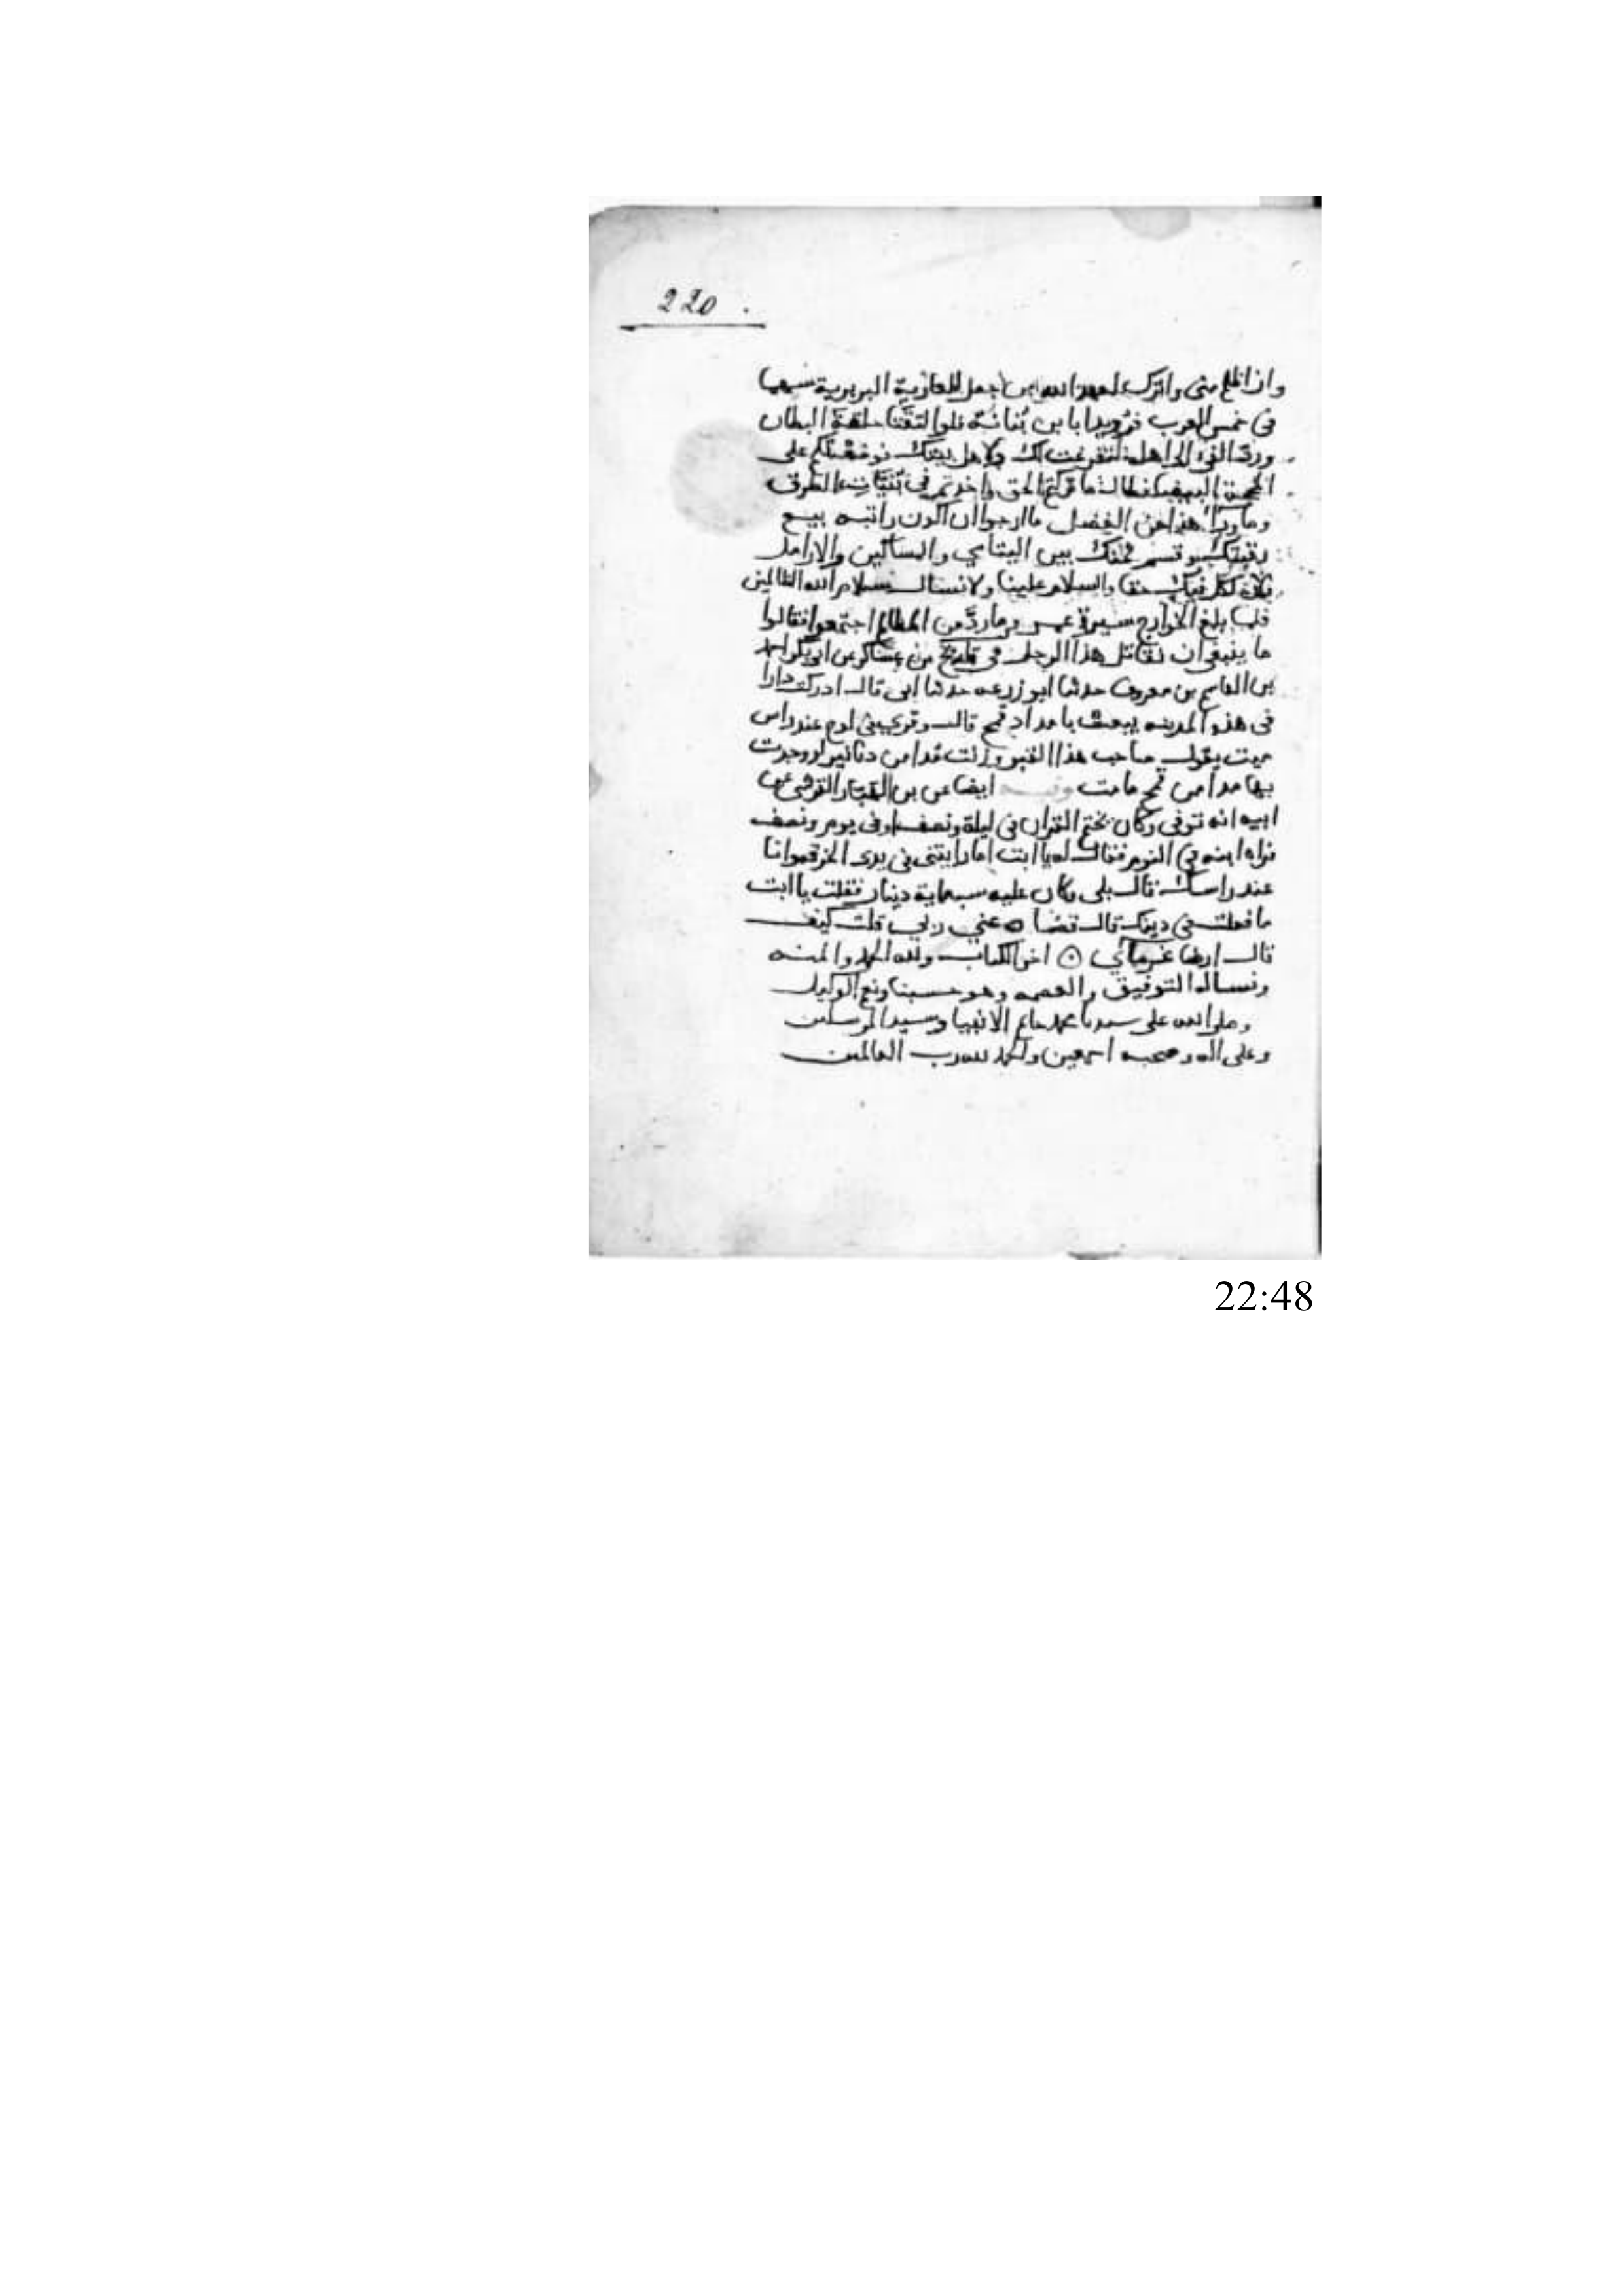 220
وان اظلم منى واترك لعهد الله من جعل للغازية البربرية سهما
فى خمس العرب فرويدا يا بن بنانة فلو التقتا حلقة البطان
ورد الفى الى اهله لتفرغت لك ولاهل بيتك فوضعتكم على
المحجة البيضا فطالما تركتم الحق واخذتم فى بنيات الطرق
وما ورآ هذا من الفضل ما ارجوا ان اكون رائيه بيع
رقبتك وقسم ثمنك بين اليتامي والمساكين والارامل
فان لكل فيك حقا والسلام علينا ولا ينال سلام الله الظالمين
فلما بلغ الخوارج سيرة عمر وما ردّ من المظالم اجتمعوا فقالوا
ما ينبغى ان نقاتل هذا الرجل فى تاريخ بن عساكر عن ابى بكر احمد
بن القاسم بن معروف حدثنا ابو زرعه حدثنا ابى قال ادركت دارا
فى هذه المدينه يبحث بامداد قمح قال وقرى لوح عند راس
ميت يقول صاحب هذا القبر وزنت مدا من دنانير لو وجدت
بها مدا من قمح ما مت وفيه ايضا عن بن القرشى عن
ابيه انه توفى وكان يختم القران فى ليلة ونصف او فى يوم ونصف
فراه ابنه فى النوم فقال له يا ابت اما رايتنى فى يدى الخرقه وانا
عند راسك قال بلى وكان عليه سبعماية دينار فقلت يا ابت
ما فعلت فى دينك قال قضاه عني ربي قلت كيف
قال ارضا غرمآئي ⊙ اخر الكتاب ولله الحمد والمنه
ونساله التوفيق والعصمه وهو حسبنا ونعم الوكيل
وصلى الله على سيدنا محمد خاتم الانبيا وسيد المرسلين
وعلى اله وصحبه اجمعين والحمد لله رب العالمين
22:48